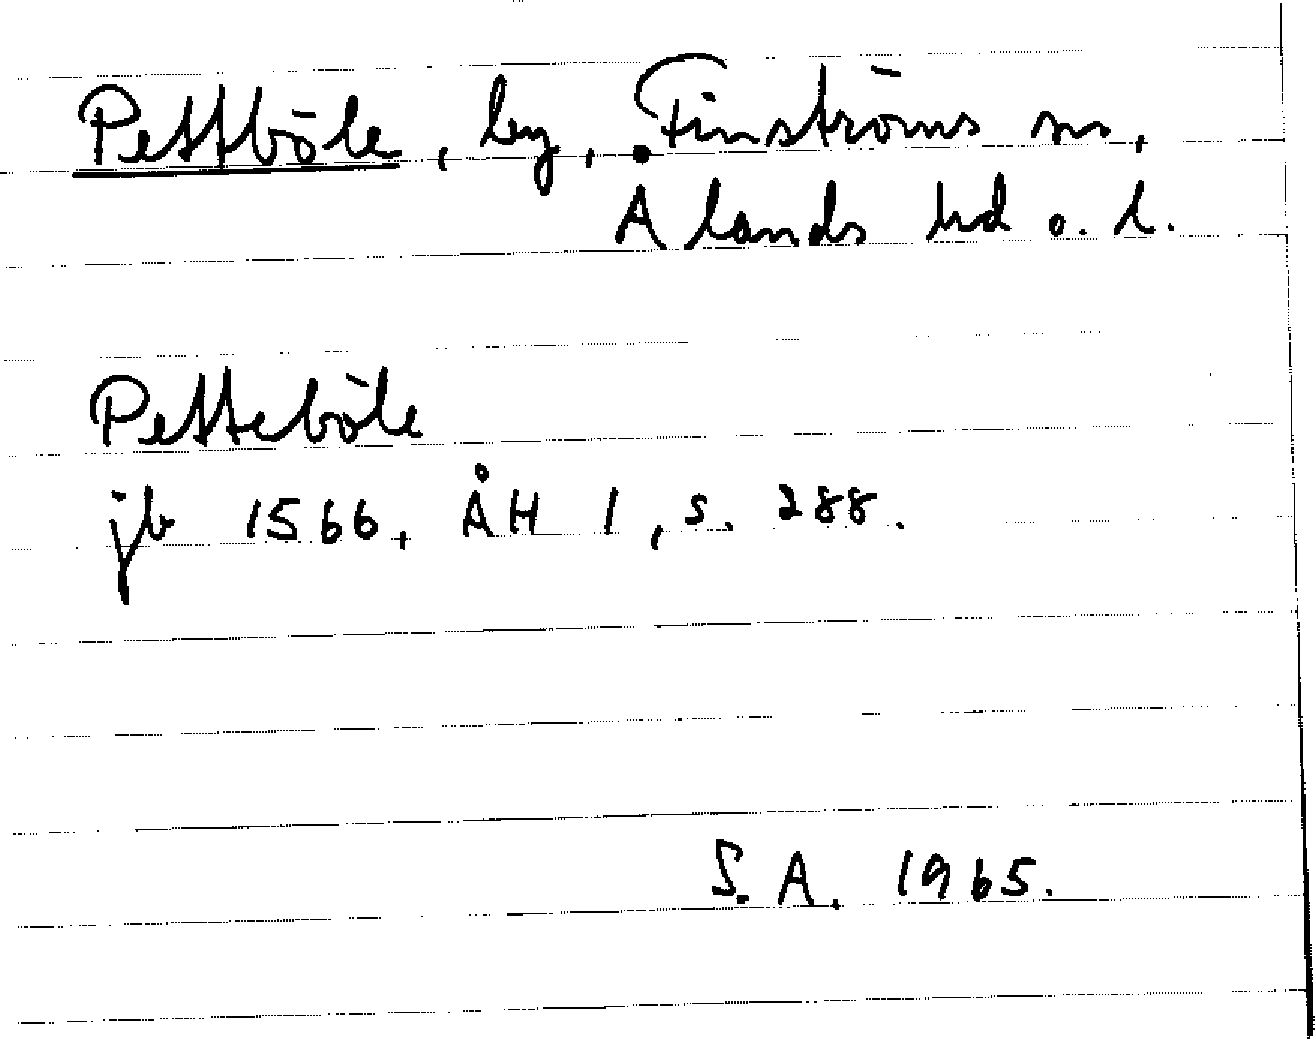 Pettböle, by, Finströms sn,
Ålands hd o. l.
Petteböle
jb 1566, ÅH 1, s. 288.
S. A. 1965.